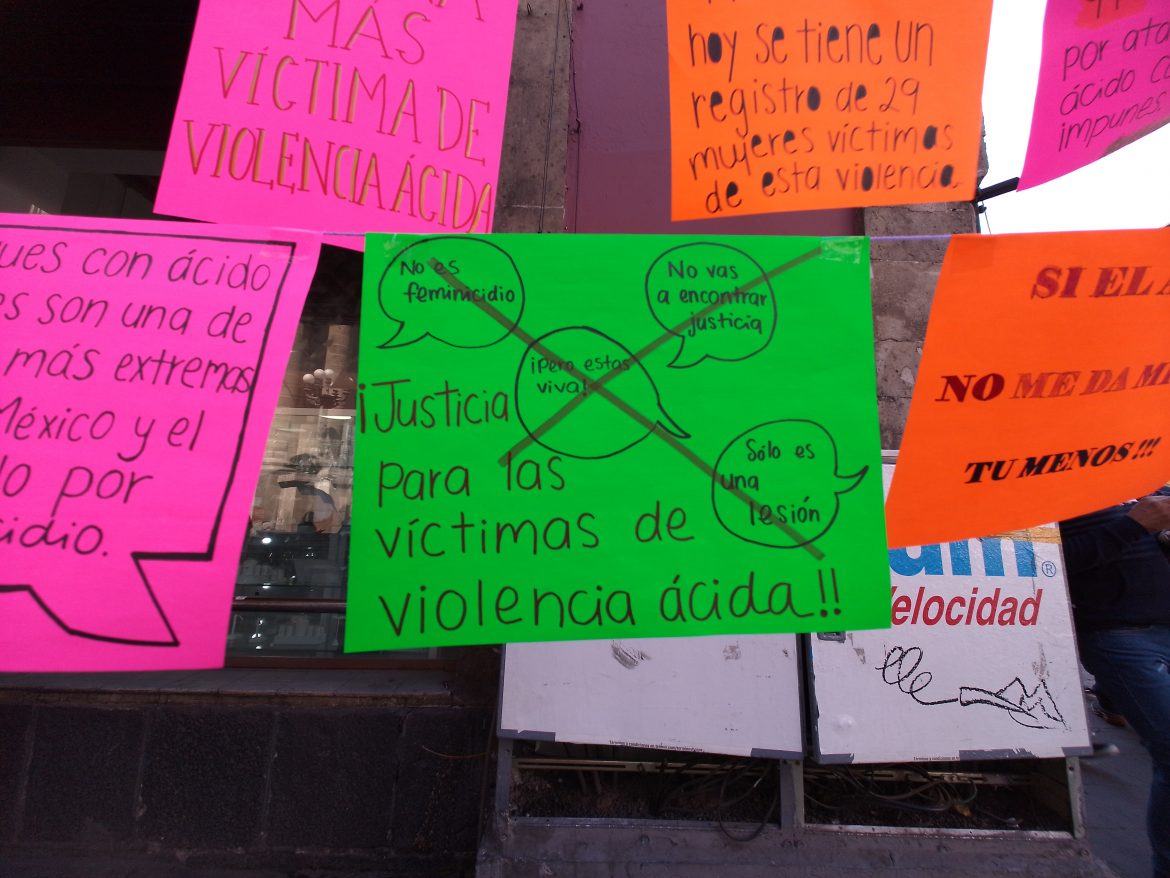 MÁS
VÍCTIMA DE
VIOLENCIA ÁCIDA
hoy se tiene un
registro de 29
mujeres víctimas
de esta violencia.
por
ácido
impunes
con ácido
son una de
más extremas
México y el
por
No es
feminicidio
No vas
a encontrar
justicia
¡Pero estas
viva!
Sólo es
una
lesión
¡Justicia
para las
víctimas de
violencia ácida!!
SI EL
NO ME DA
TU MENOS!!!
®
Velocidad